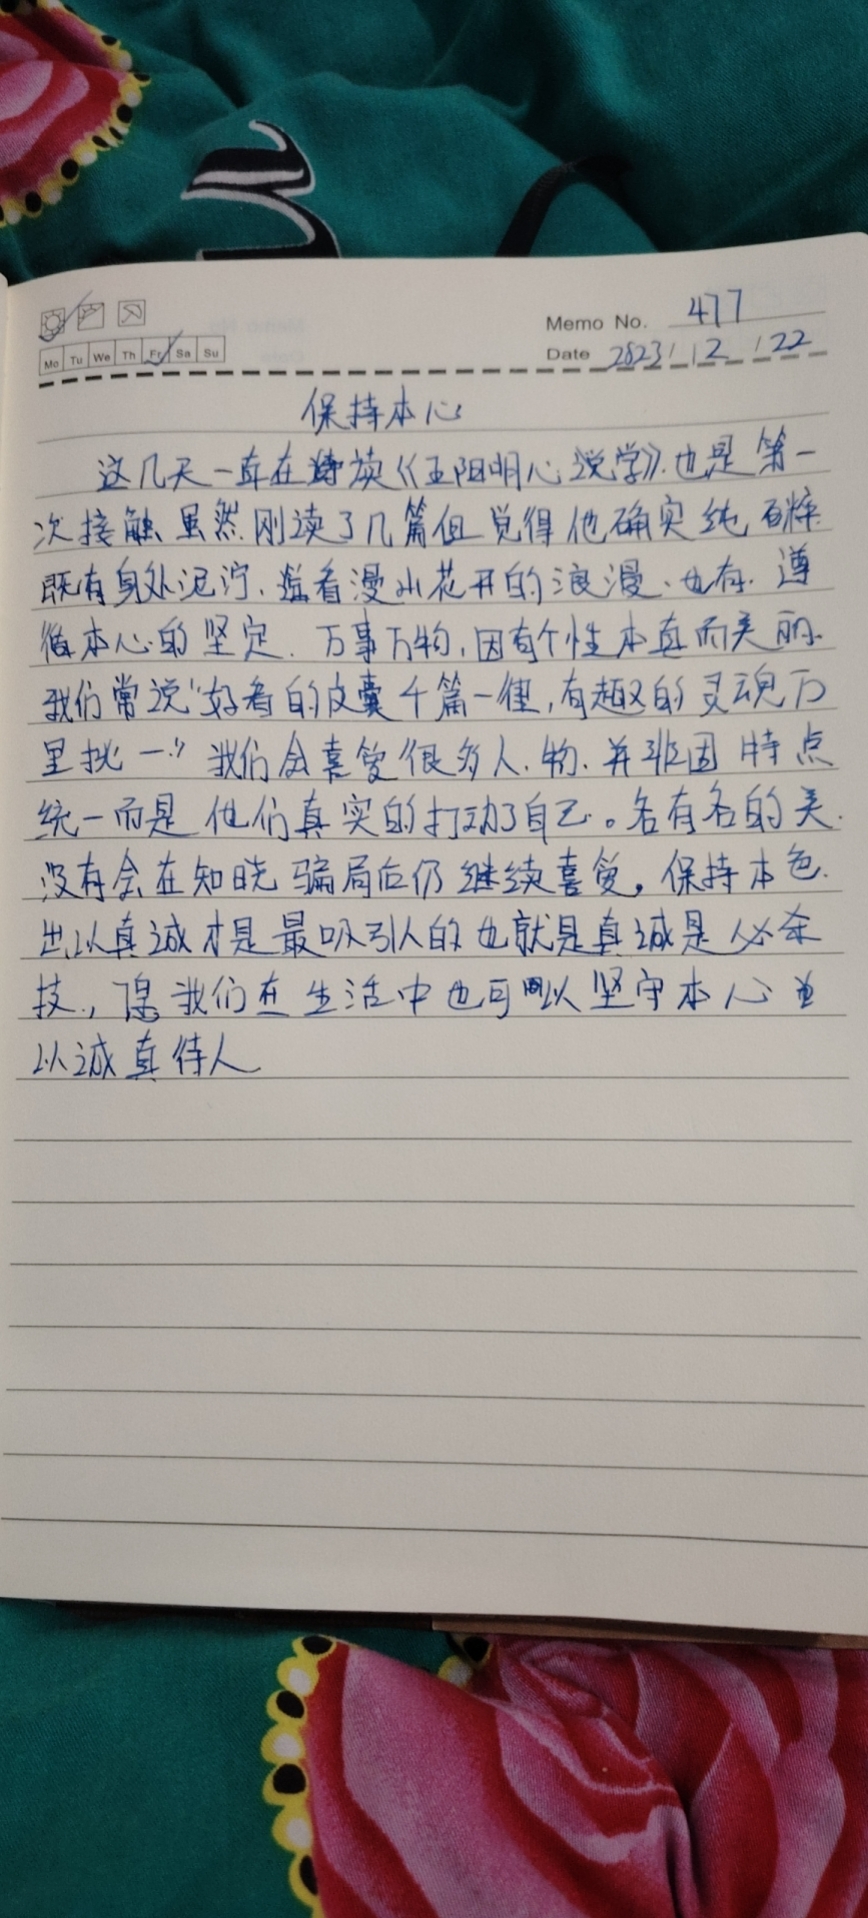 Memo No. 477
Mo Tu We Th Fr Sa Su
Date 2023/12/22
保持本心
这几天一直在读《王阳明心学》.也是第一
次接触 虽然刚读了几篇但觉得他确实纯粹
既有身处泥泞、看漫山花开的浪漫、也有. 遵
循本心的坚定. 万事万物,因有个性本真而美丽.
我们常说"好看的皮囊千篇一律,有趣的灵魂万
里挑一." 我们会喜爱很多人.物. 并非因特点
统一而是他们真实的打动了自己。各有各的美.
没有会在知晓骗局后仍继续喜爱。保持本色.
出以真诚才是最吸引人的也就是真诚是必杀
技., 愿我们在生活中也可以坚守本心
以诚真待人